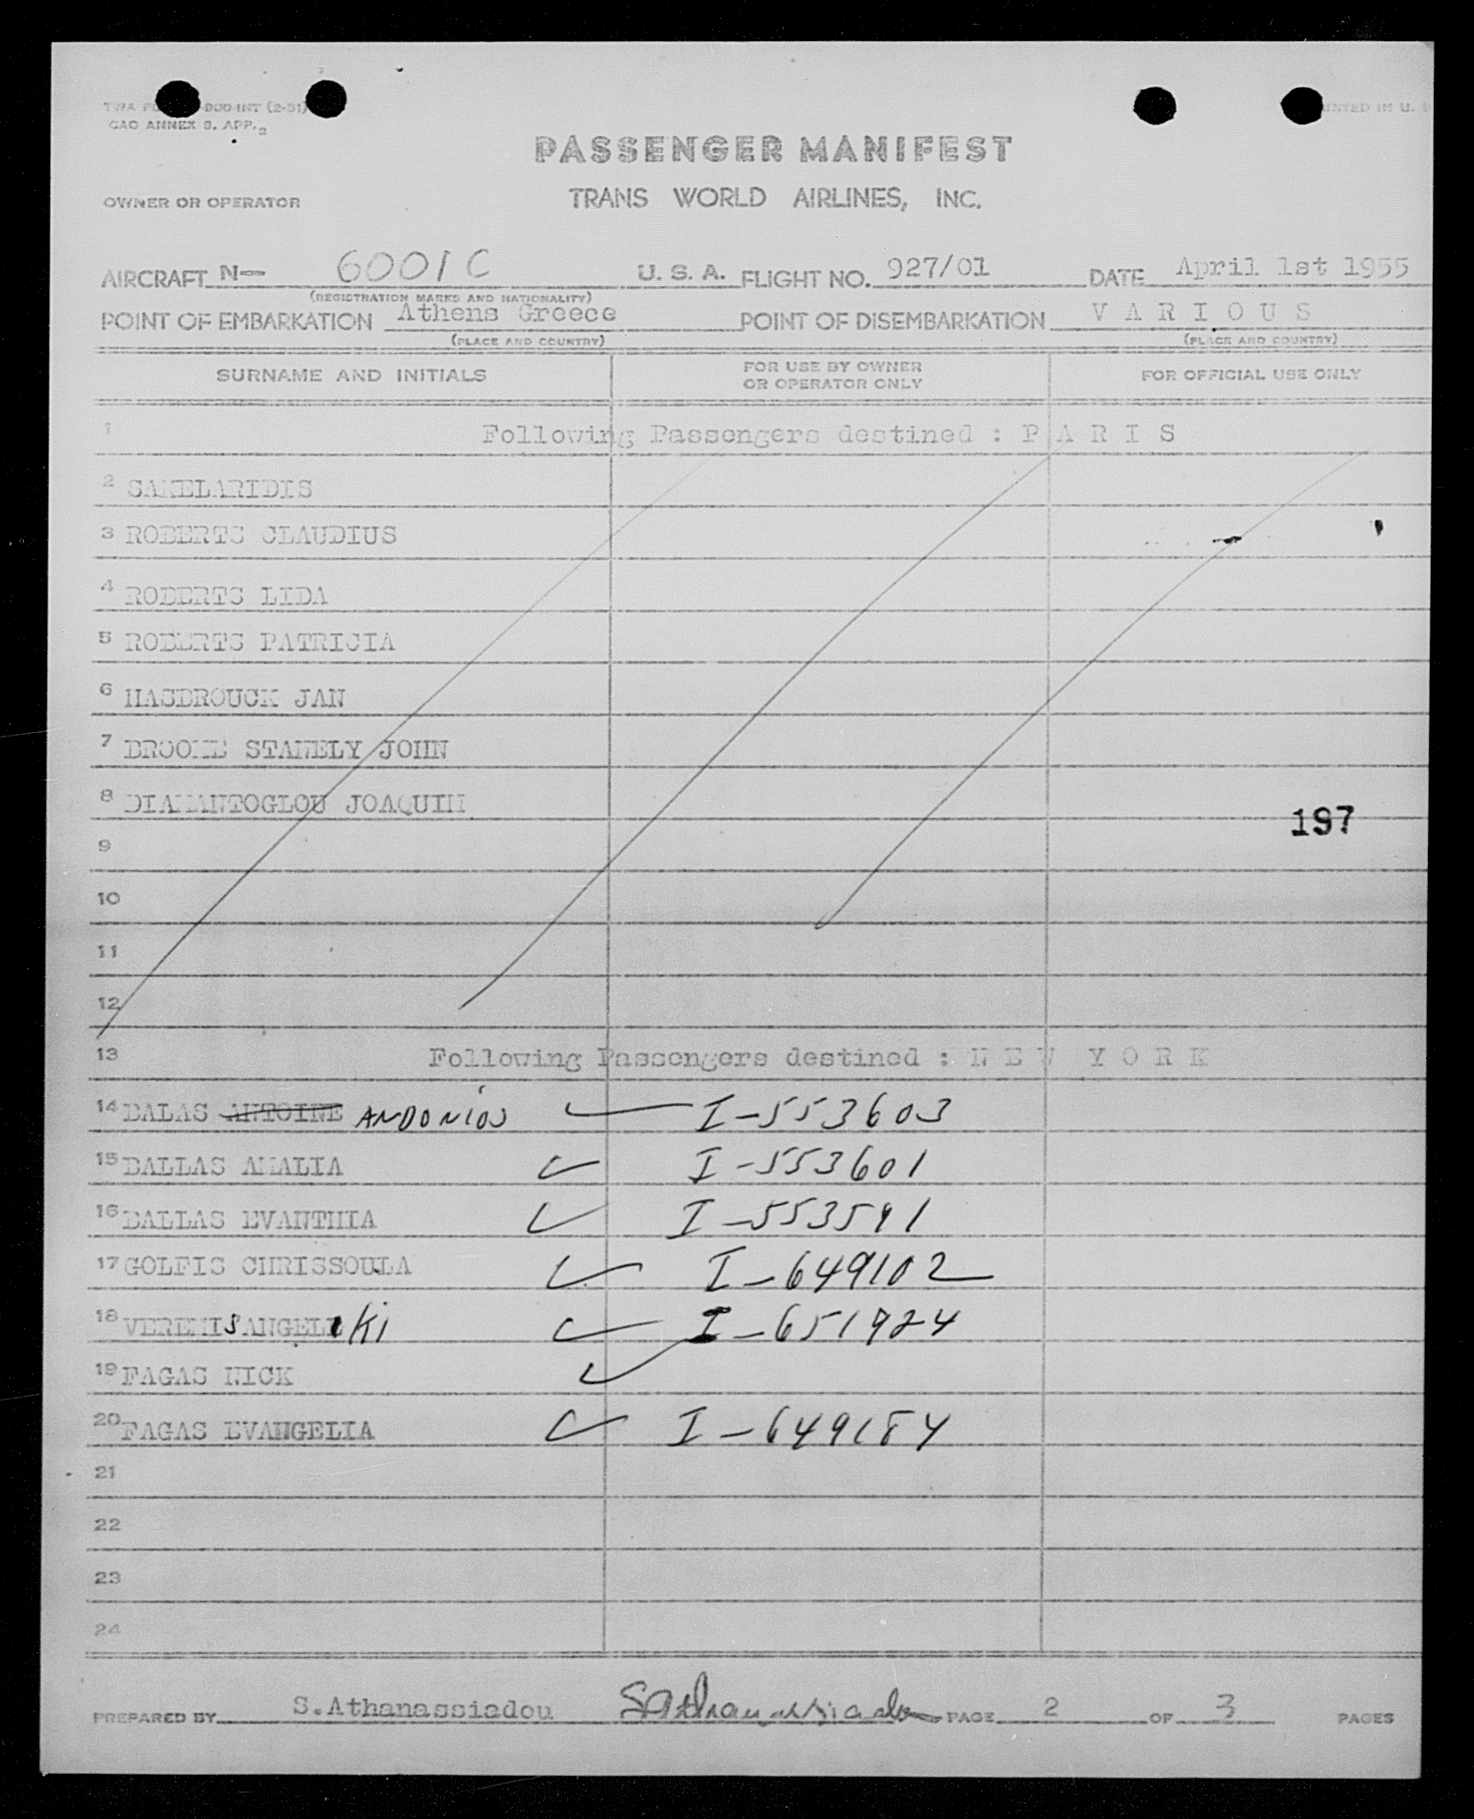 (2-51)
CAO ANNEX 9. APP. 2
PRINTED IN U.
PASSENGER MANIFEST
OWNER OR OPERATOR
TRANS WORLD AIRLINES, INC.
AIRCRAFT N- 6001C U. S. A. FLIGHT NO. 927/01 DATE April 1st 1955
(REGISTRATION MARKS AND NATIONALITY)
POINT OF EMBARKATION Athens Greece POINT OF DISEMBARKATION V A R I O U S
(PLACE AND COUNTRY) (PLACE AND COUNTRY)
SURNAME AND INITIALS FOR USE BY OWNER OR OPERATOR ONLY FOR OFFICIAL USE ONLY
1 Following Passengers destined : P A R I S
2 SAKELARIDIS
3 ROBERTS CLAUDIUS
4 ROBERTS LIDA
5 ROBERTS PATRICIA
6 HASBROUCK JAN
7 BROOME STANELY JOHN
8 DIAMANTOGLOU JOAQUIM
197
9
10
11
12
13 Following Passengers destined : N E W Y O R K
14 DALAS ANTOINE ANDONIOS I-553603
15 DALLAS AMALIA I-553601
16 DALLAS EVANTHIA I-553591
17 GOLFIS CHRISSOULA I-649102
18 VEREMIS ANGELIKI I-651924
19 FAGAS NICK
20 FAGAS EVANGELIA I-649184
21
22
23
24
PREPARED BY S.Athanassiadou SAthanassiadou PAGE 2 OF 3 PAGES